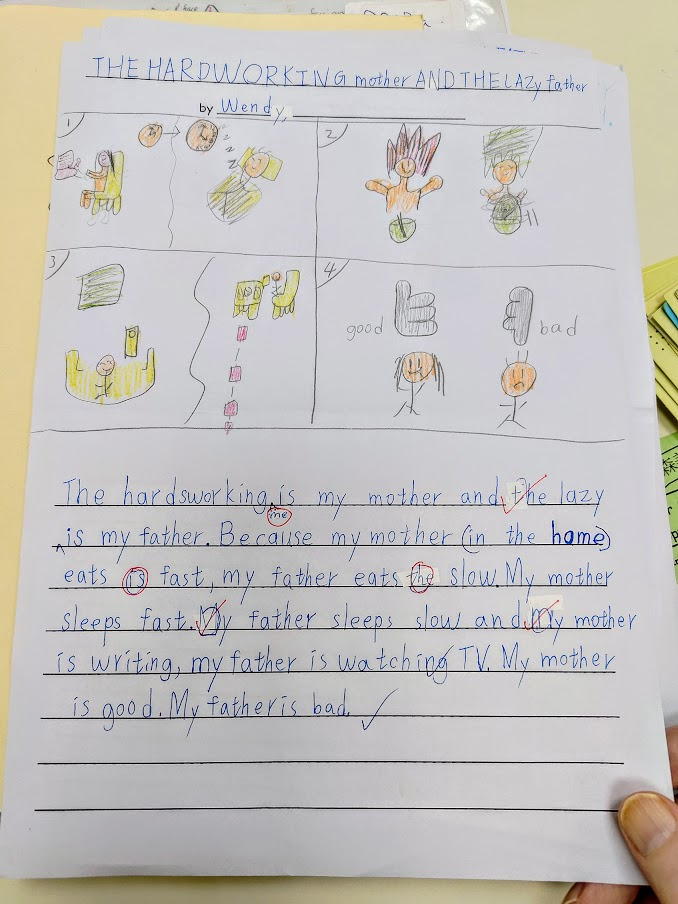 THE HARDWORKING mother AND THE LAZy father
by Wendy,
1
2
3
4
good
bad
The hardsworking is my mother and the lazy
me
^ is my father. Because my mother (in the home)
eats is fast, my father eats the slow. My mother
sleeps fast. My father sleeps slow and My mother
is writing, my father is watching TV. My mother
is good. My father is bad.